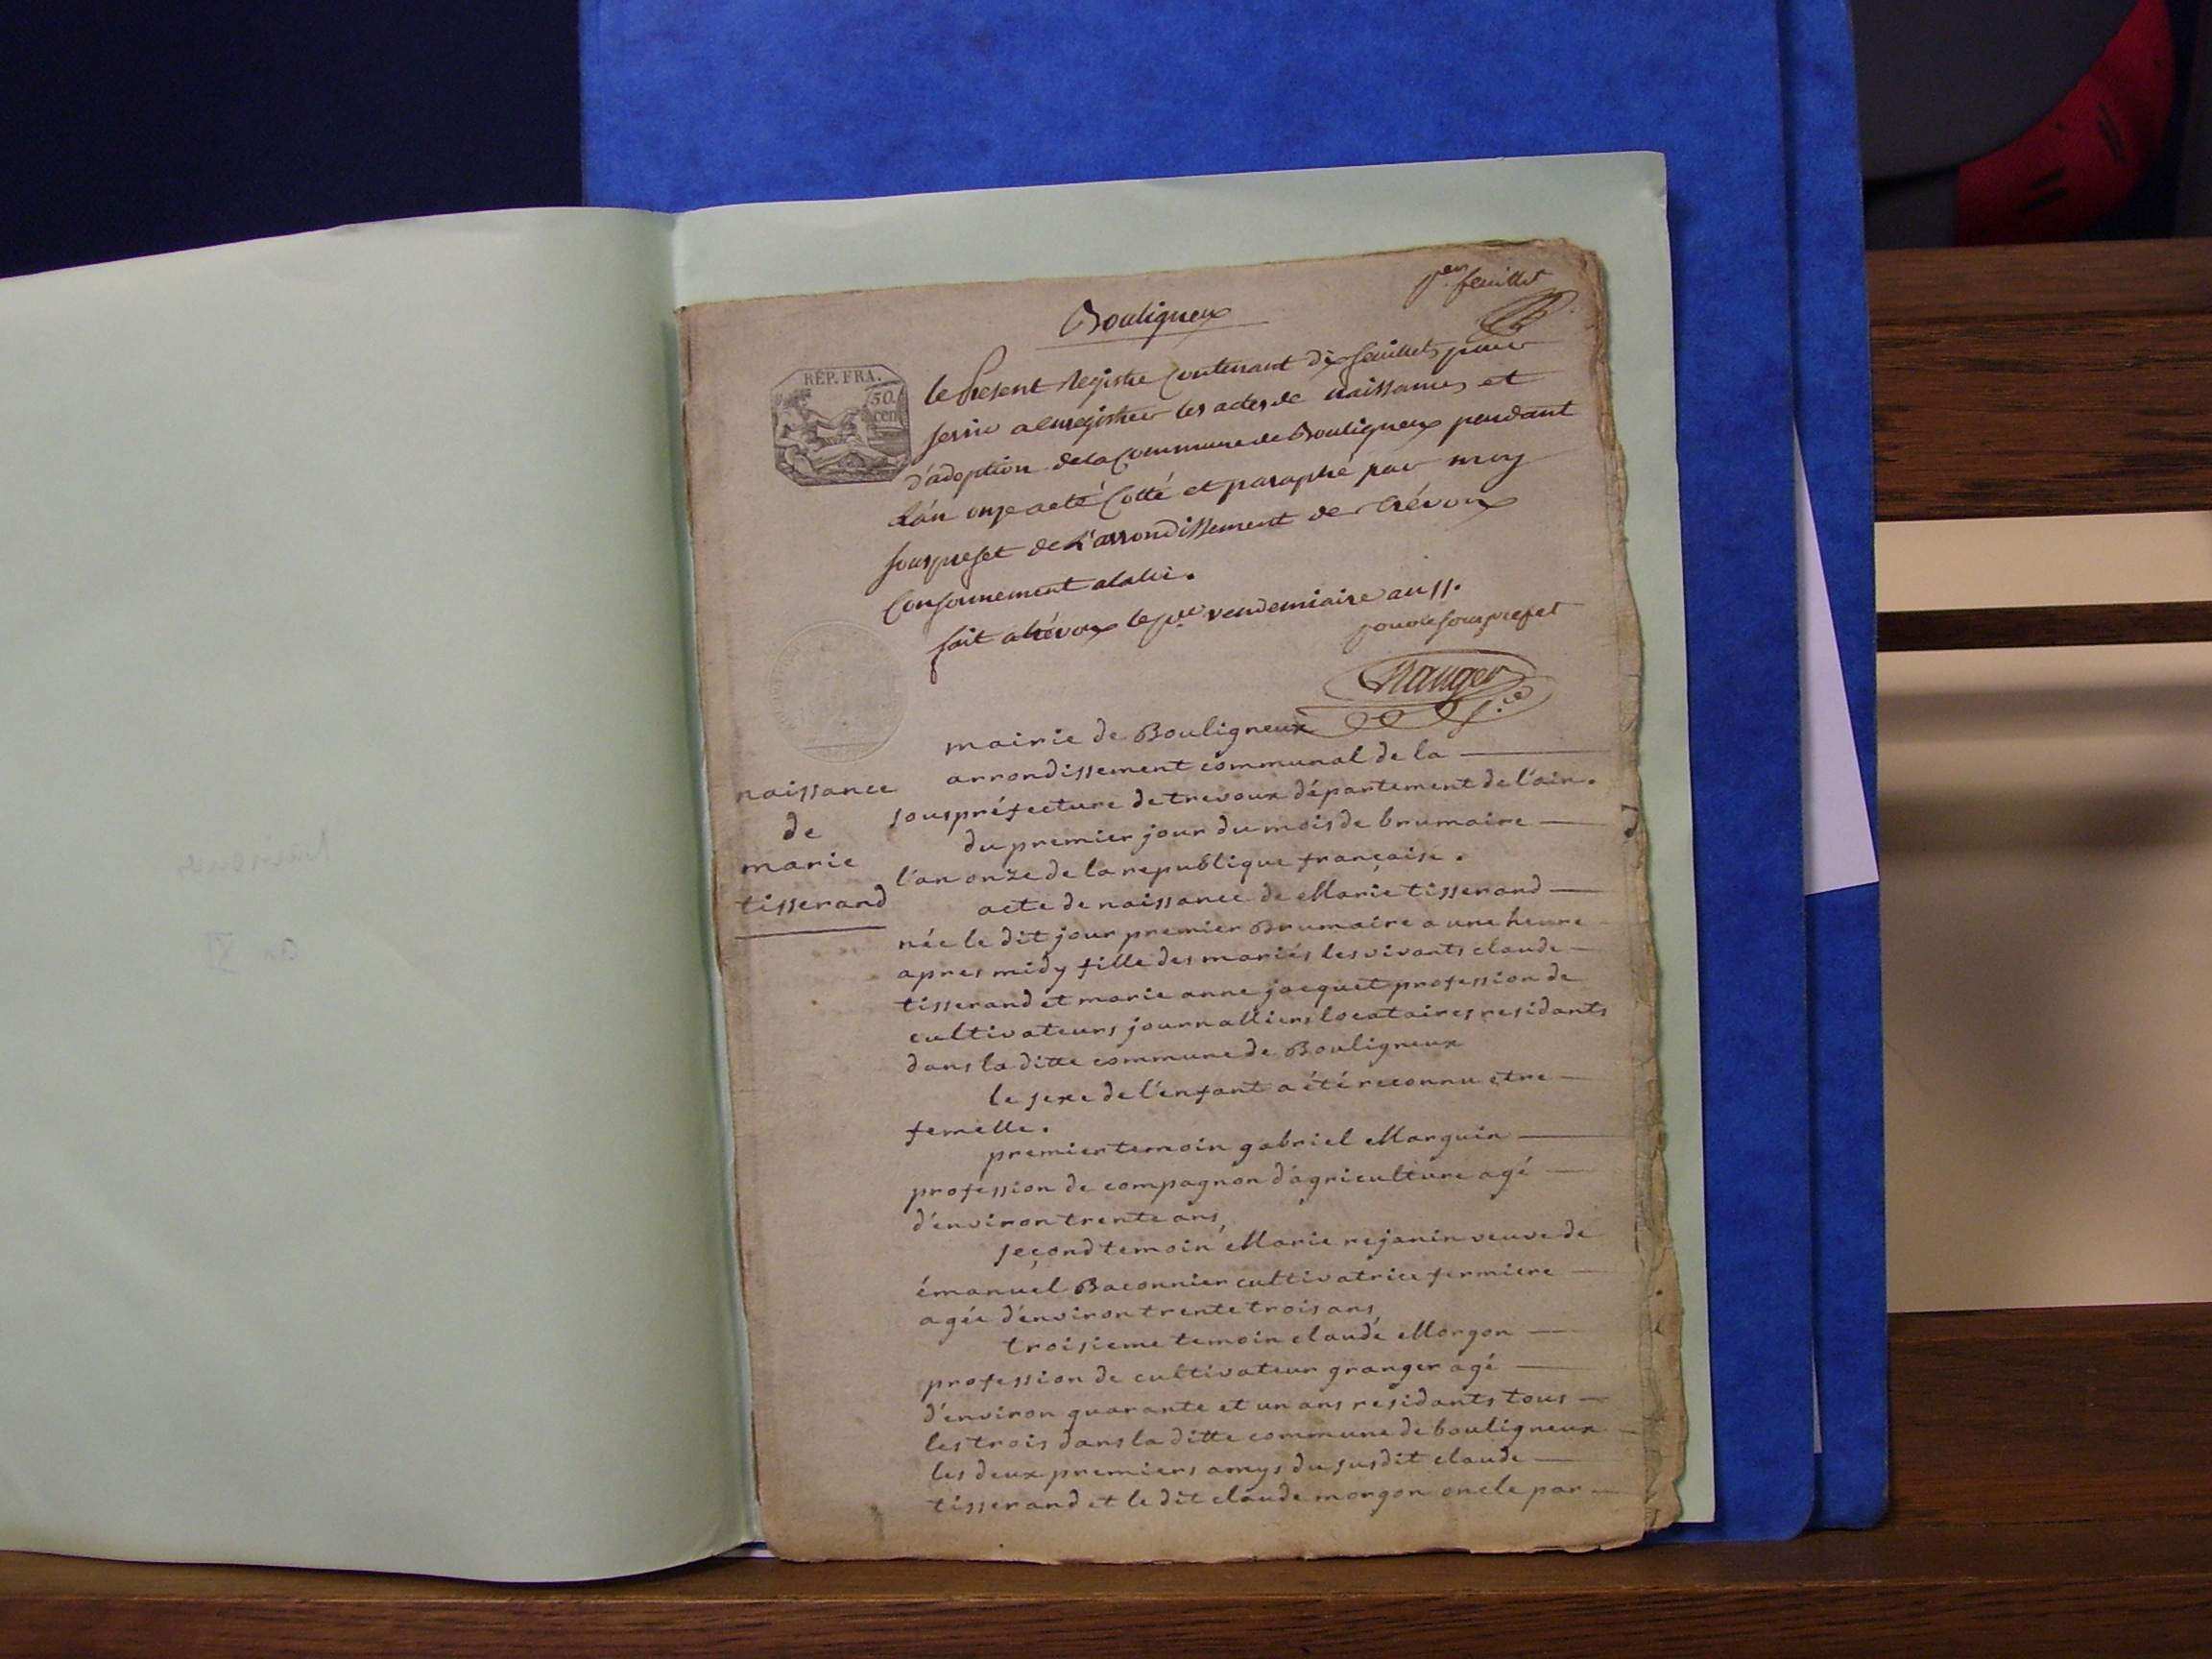 1er feuillet
Bouligneux
REP. FRA.
50
cen
le present Registre Contenant dix feuillets pour
servir a enregistrer les actes de naissances et
d'adoption de la Commune de Bouligneux pendant
L'an onze a eté Cotté et paraphé par moy
souspréfet de L'arrondissement de Trévoux
Conformement a la loi.
fait a trévoux le 1er vendemiaire an 11.
pour le sousprefet
mairie de Bouligneux
arrondissement communal de la
souspréfecture de trevoux département de l'ain.
du premier jour du mois de brumaire
l'an onze de la republique française.
naissance
de
marie
tisserand
acte de naissance de Marie tisserand
née le dit jour premier Brumaire a une heure
apres midy fille des mariés les vivants claude
tisserand et marie anne jacquet profession de
cultivateurs journalliers locataires residants
dans la ditte commune de Bouligneux
le sexe de l'enfant a été reconnu etre
femelle.
premier temoin gabriel Marguin
profession de compagnon d'agriculture agé
d'environ trente ans,
second temoin Marie rejanin veuve de
émanuel Baconnier cultivatrice fermiere
agée d'environ trente trois ans,
troisieme temoin claude Morgon
profession de cultivateur granger agé
d'environ quarante et un ans residants tous
les trois dans la ditte commune de bouligneux
les deux premiers amys du susdit claude
tisserand et le dit claude morgon oncle par